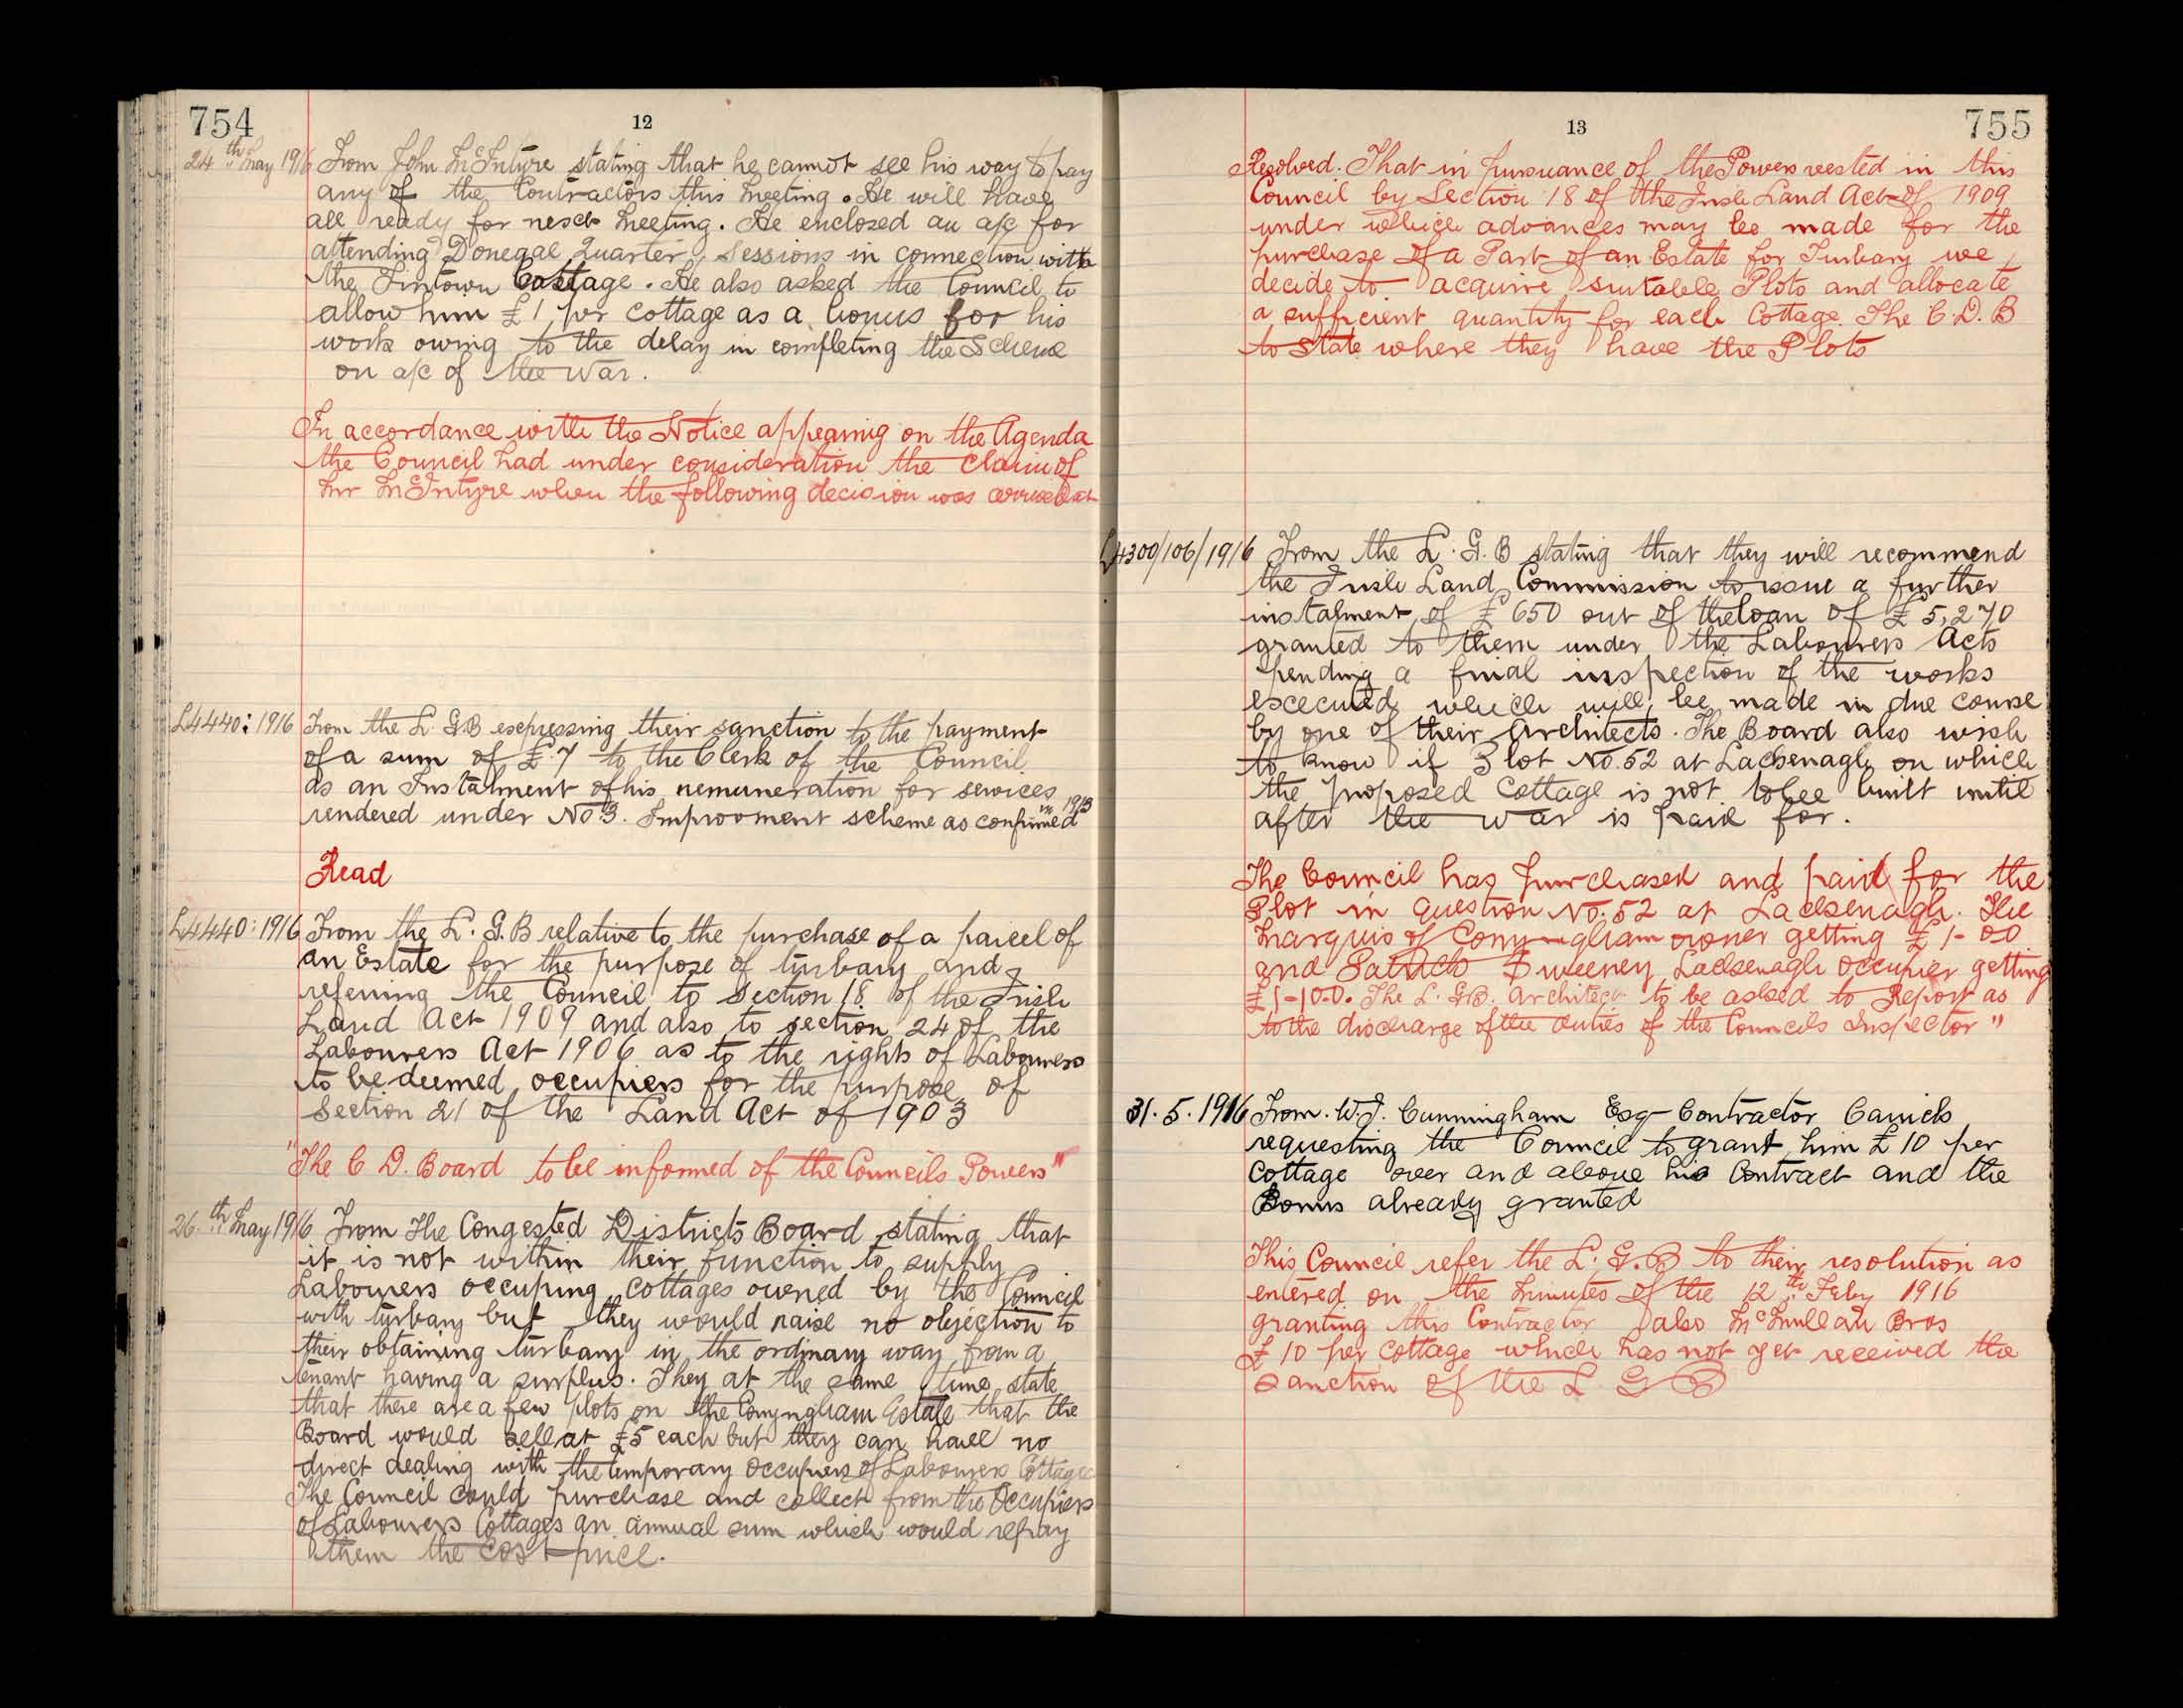 754
12
24th May 1916 From John McIntyre stating that he cannot see his way to pay
any of the Contractors this Meeting. He will have
all ready for next Meeting. He enclosed an a/c for
attending Donegal Quarter Sessions in connection with
the Fintown Cottage. He also asked the Council to
allow him £1 per cottage as a bonus for his
work owing to the delay in completing the Scheme
on a/c of the War.
In accordance with the Notice appearing on the Agenda
the Council had under consideration the claim of
Mr McIntyre when the following decision was arrived at
L4440:1916 From the L. G.B expressing their sanction to the payment
of a sum of £7 to the Clerk of the Council
as an Instalment of his remuneration for services
rendered under No 3. Improvment scheme as confirmed in 1913
Read
L4440:1916 From the L. G. B relative to the purchase of a parcel of
an Estate for the purpose of turbary and
referring the Council to Section 18 of the Irish
Land Act 1909 and also to section 24 of the
Labourers Act 1906 as to the rights of Labourers
to be deemed occupiers for the purpose of
Section 21 of the Land Act of 1903
"The C D. Board to be informed of the Councils Powers"
26th May 1916 From the Congested Districts Board stating that
it is not within their function to supply
Labourers occuping cottages owned by the Council
with turbary but they would raise no objection to
their obtaining turbary in the ordinary way from a
tenant having a surplus. They at the same time state
that there are a few plots on the Conyngham Estate that the
Board would sell at £5 each but they can have no
direct dealing with the temporary Occupiers of Labourers Cottages
The Council could purchase and collect from the Occupiers
of Labourers Cottages an annual sum which would repay
them the cost price.
13
755
Resolved. That in pursuance of the Powers vested in this
Council by Section 18 of the Irish Land Act of 1909
under which advances may be made for the
purchase of a Part of an Estate for Turbary we
decide to acquire suitable Plots and allocate
a sufficient quantity for each Cottage. The C. D. B
to state where they have the Plots
L4300/106/1916 From the L. G. B stating that they will recommend
the Irish Land Commission to issue a further
instalment of £650 out of the loan of £5,270
granted to them under the Labourers Acts
pending a final inspection of the works
excecuted which will be made in due course
by one of their Architects. The Board also wish
to know if Plot No. 52 at Lackenagh on which
the proposed Cottage is not to be built until
after the war is paid for.
The Council has purchased and paid for the
Plot in question No. 52 at Lackenagh. The
Marquis of Conyngham owner getting £1-0-0
and Patrick Sweeney Lackenagh occupier getting
£1-10-0. The L. G.B. Architect to be asked to Report as
to the discharge of the duties of the Councils Inspector"
31.5.1916 From. W.J. Cunningham Esq Contractor Carrick
requesting the Council to grant him £10 per
Cottage over and above his Contract and the
Bonus already granted
This Council refer the L. G. B to their resolution as
entered on the Minutes of the 12th Feby 1916
granting this Contractor also McMullan Bros
£10 per cottage which has not yet received the
sanction of the L. G B